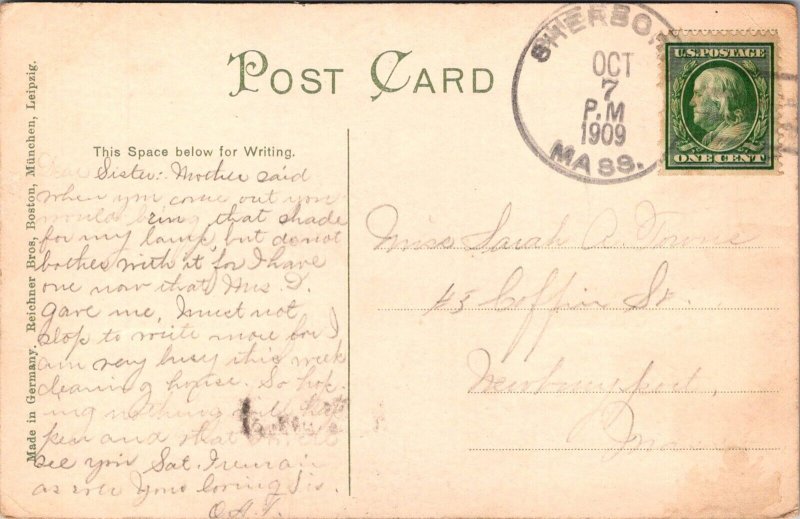 POST CARD
This Space below for Writing.
Made in Germany. Reichner Bros, Boston, München, Leipzig.
SHERBORN
OCT
7
P.M
1909
MASS.
U.S. POSTAGE
ONE CENT
Dear Sister:- Mother said
when you come out you
would bring that shade
for my lamp, but do not
bother with it for I have
one now that Mrs. D.
gave me, Must not
stop to write more for I
am very busy this week
cleaning house. So hop-
ing nothing will hap-
pen and that I
see you Sat. I remain
as ever your loving Sis.
O.A.T.
Miss Sarah A. Towne
43 Coffin St.
Newburyport,